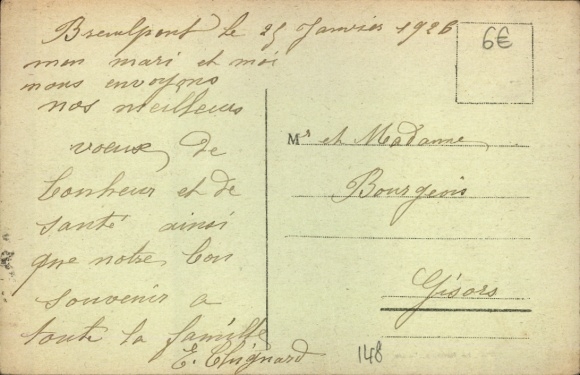 Breuilpont le 25 Janvier 1926
mon mari et moi
nous envoyons
nos meilleurs
voeux de
bonheur et de
santé ainsi
que notre bon
souvenir a
toute la famille
E. Chignard
6€
Mr et Madame
Bourgeois
Gisors
148